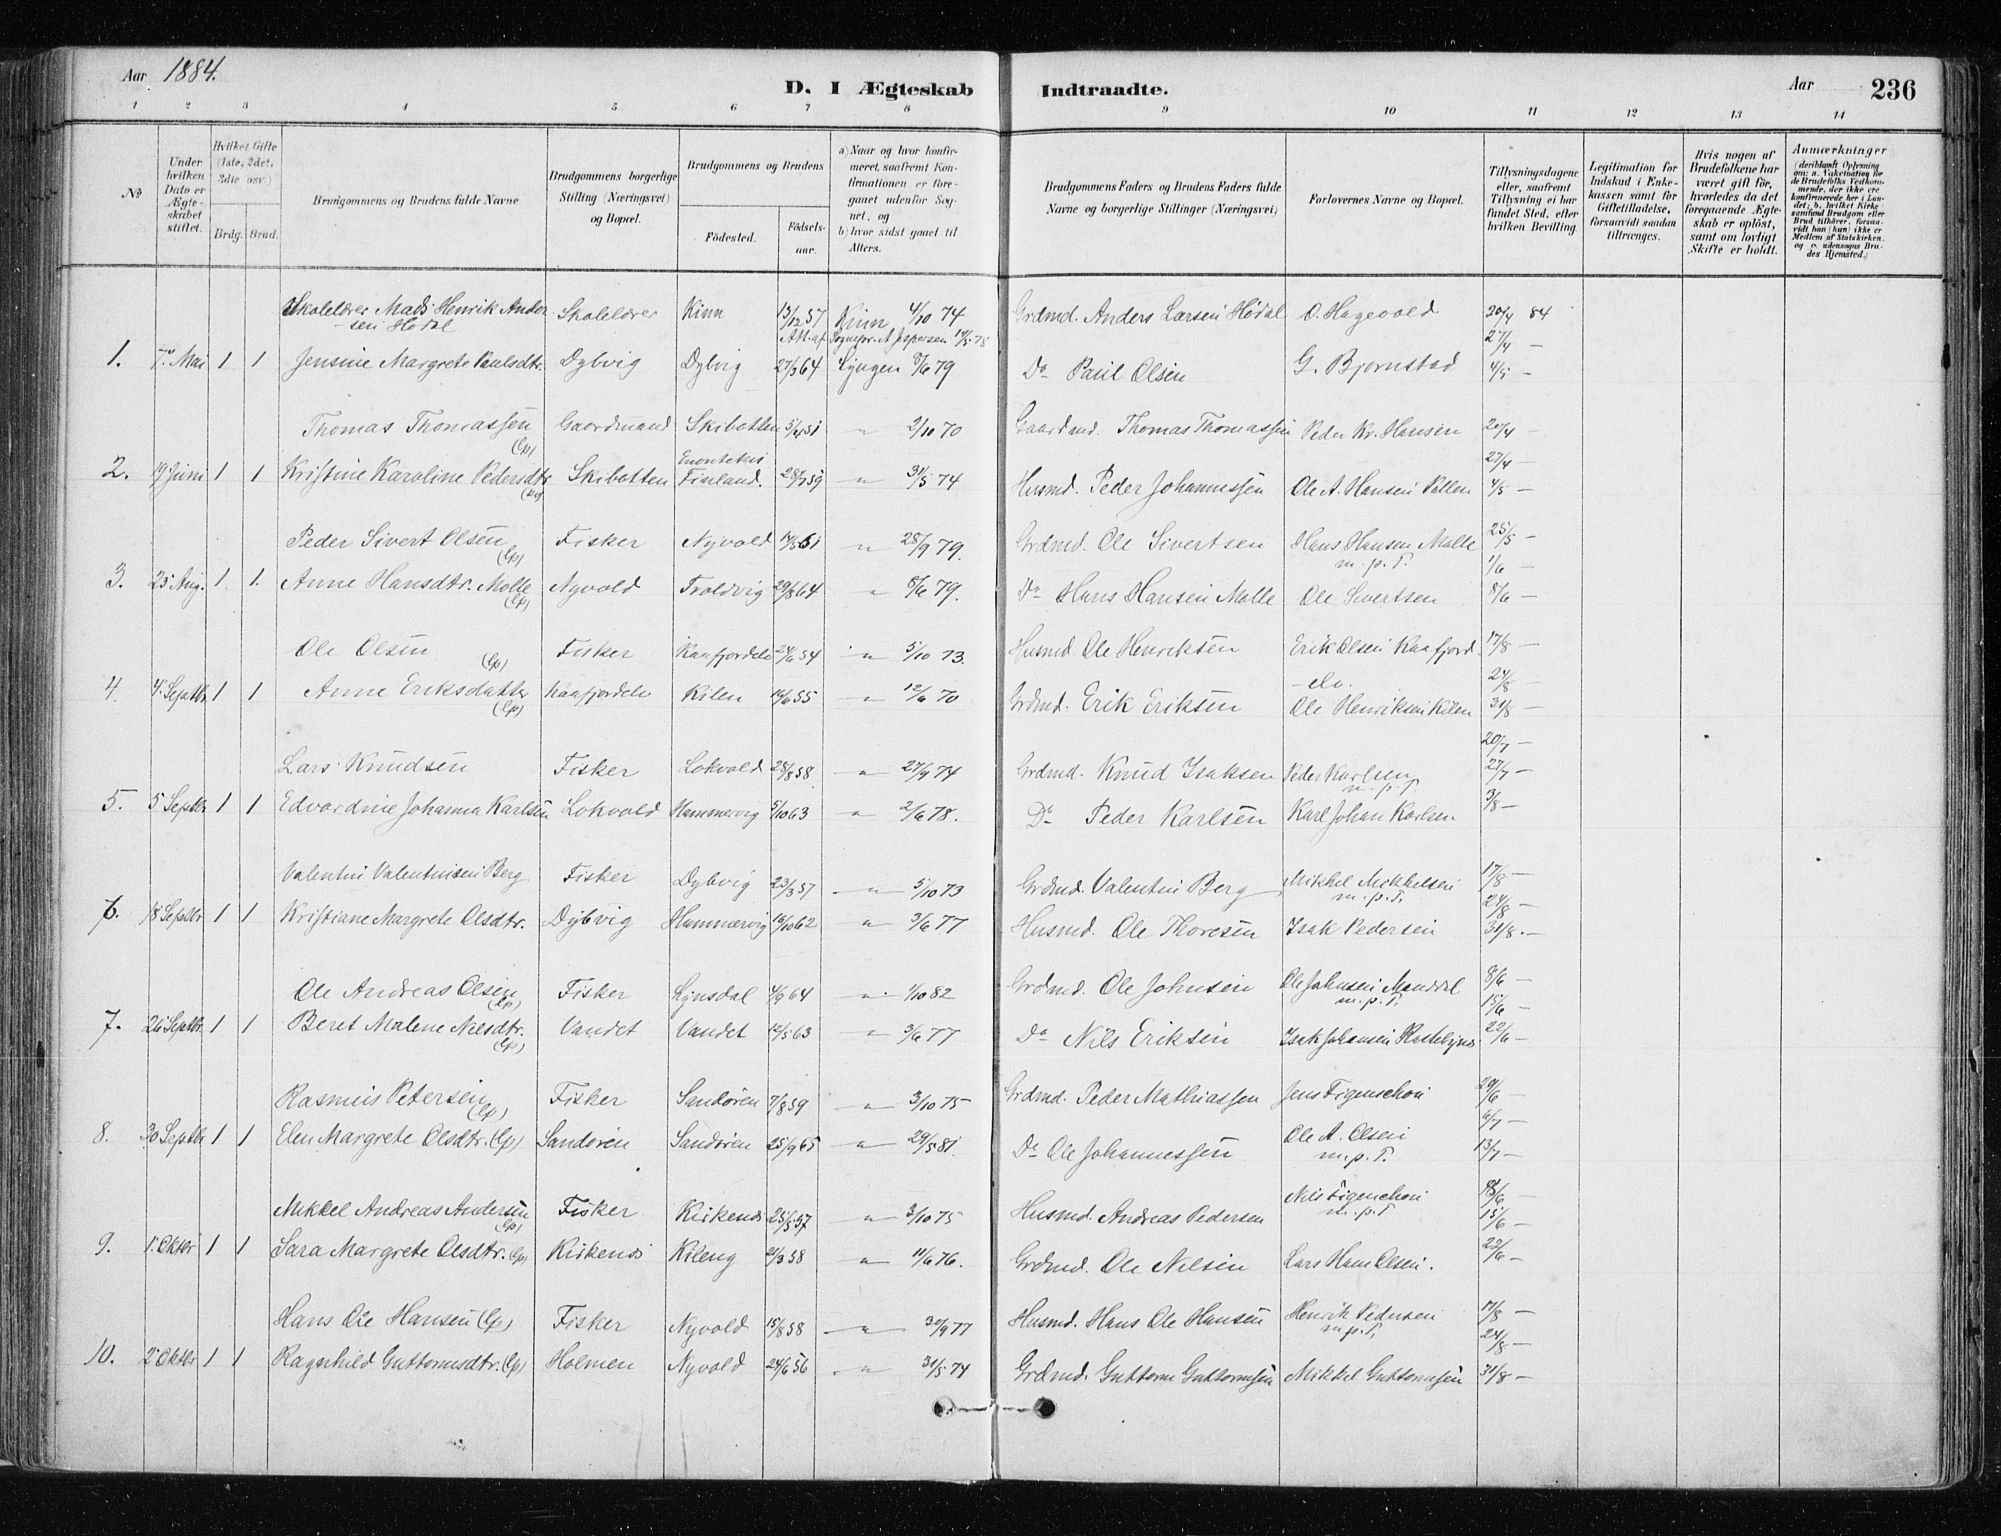 Aar 1884.
D. I Ægteskab Indtraadte.
Aar 236
1 2 3 4 5 6 7 8 9 10 11 12 13 14
No
Under hvilken Dato er Ægteskabet stiftet.
Hvilket Gifte (1ste, 2det, 3die osv.)
Brdg. Brud.
Brudgommens og Brudens fulde Navne
Brudgommens borgerlige Stilling (Næringsvei) og Bopæl.
Brudgommens og Brudens
Fødested. Fødselsaar.
a) Naar og hvor konfirmeret, saafremt Konfirmationen er foregaaet udenfor Sognet, og
b) hvor sidst gaaet til Alters.
Brudgommens Faders og Brudens Faders fulde Navne og borgerlige Stillinger (Næringsvei)
Forlovernes Navne og Bopæl.
Tillysningsdagene eller, saafremt Tillysning ei har fundet Sted, efter hvilken Bevilling.
Legitimation for Indskud i Enkekassen samt for Giftetilladelse, forsaavidt saadan tiltrænges.
Hvis nogen af Brudefolkene har været gift før, hvorledes da det foregaaende Ægteskab er opløst, samt om lovligt Skifte er holdt.
Anmærkninger (deriblandt Oplysning om: a. Vakcination for de Brudefolks Vedkommende, der ikke ere konfirmerede her i Landet; b. hvilket Kirkesamfund Brudgom eller Brud tilhører, forsaavidt han (hun) ikke er Medlem af Statskirken, og c. udensogns Brudes Hjemsted.)
Skolelærer Mads Henrik Andersen Hødal Skolelærer Kinn 13/12 57 Kinn 4/10 74 Grdmd. Anders Larsen Hødal O. Hagevold 20/4 84
Att. af Sognepr. A Jespersen 14/5 78 27/4 —
1. 7de Mai 1 1 Jensine Margrete Paulsdtr. Dybvig Dybvig 27/3 64 Lyngen 8/6 79 Do Paul Olsen G. Bjørnstad 4/5 —
Thomas Thomassen (Lp) Gaardmand Skibotten 5/4 51 " 2/10 70 Gaardmd. Thomas Thomassen Peder Kr. Hansen 20/4 —
Enontekis 27/4 —
2. 19 Juni 1 1 Kristine Karoline Pedersdtr. Skibotten Finland. 28/7 59 " 31/5 74 Husmd. Peder Johannessen Ole A. Hansen Pollen 4/5 —
Peder Sivert Olsen (Lp) Fisker Nyvold 14/5 61 " 28/9 79. Grdmd. Ole Sivertsen Hans Hansen Molle 25/5 —
m. p. P. 1/6 —
3. 25 Aug. 1 1 Anne Hansdtr. Molle (Lp) Nyvold Troldvig 29/8 64 " 8/6 79. Do Hans Hansen Molle Ole Sivertsen 8/6 —
Ole Olsen (Lp) Fisker Kaafjordelv 24/6 54 " 5/10 73. Husmd. Ole Henriksen Erik Olsen Kaafjord 17/8 —
elv. 24/8 —
4. 4 Septbr. 1 1 Anne Eriksdatter (Lp) Kaafjordelv Kilen 14/6 55 " 12/6 70 Grdmd. Erik Eriksen Ole Henriksen Kilen 31/8 —
20/7 —
Lars Knudsen Fisker Lokvold 28/8 58 " 27/9 74 Grdmd. Knud Isaksen Peder Karlsen 27/7 —
m. p. P.
5. 5 Septbr. 1 1 Edvardine Johanna Karlsen Lokvold Hammervig 5/10 63 " 2/6 78. Do Peder Karlsen Karl Johan Karlsen 3/8 —
Valentin Valentinsen Berg Fisker Dybvig 23/3 57 " 5/10 73 Grdmd. Valentin Berg Mikkel Mikkelsen 17/8 —
m. p. P. 24/8 —
6. 18 Septbr 1 1 Kristiane Margrete Olsdtr. Dybvig Hammervig 16/10 62 " 3/6 77 Husmd. Ole Thoresen Isak Pedersen 31/8 —
Ole Andreas Olsen (Lp) Fisker Lynsdal 4/9 64 " 1/10 82 Grdmd. Ole Johnsen Ole Johnsen Manddal 8/6 —
m. p. P. 15/6 —
7. 26 Septbr. 1 1 Beret Malene Nilsdtr. (Lp) Vandet Vandet 12/5 63 " 3/6 77 Do Nils Eriksen Isak Johansen 22/6 —
Rasmus Petersen (Lp) Fisker Sandøren 7/8 59 " 3/10 75 Grdmd. Peder Mathiassen Jens Figenschou 29/6 —
6/7 —
8. 30 Septbr 1 1 Elen Margrete Olsdtr. (Lp) Sandøren Sandøren 25/9 65 " 29/5 81. Do Ole Johannessen Ole A. Olsen 13/7 —
m. p. P.
Nils Figenschou 8/6 —
Mikkel Andreas Andersen (Lp) Fisker Kirkenes 25/5 57 " 3/10 75 Husmd. Andreas Pedersen m. p. P 15/6 —
9. 1 Oktbr 1 1 Sara Margrete Olsdtr. (Lp) Kirkenes Kileng 21/3 58 " 11/6 76. Grdmd. Ole Nilsen Lars Hans Olsen. 22/6 —
Hans Ole Hansen (Lp) Fisker Nyvold 15/8 58 " 30/9 77 Husmd. Hans Ole Hansen Henrik Pedersen 17/8 —
m. p. P. 24/8 —
10. 2 Oktbr 1 1 Ragnhild Guttormsdtr. (Lp) Holmen Nyvold 24/6 56 " 31/5 74 Grdmd. Guttorm Guttormsen Mikkel Guttormsen 31/8 —